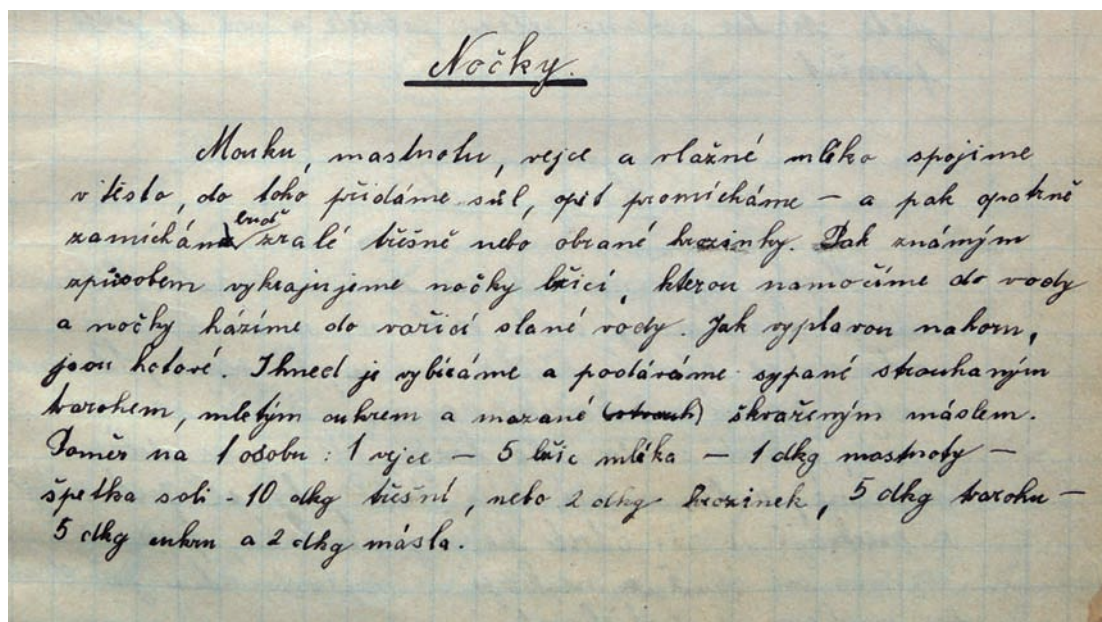 Nočky.
Mouku, mastnotu, vejce a vlažné mléko spojíme
v těsto, do toho přidáme sůl, opět promícháme – a pak opatrně
buď
zamícháme zralé třešně nebo obrané hrozinky. Pak známým
způsobem vykrajujeme nočky lžící, kterou namočíme do vody
a nočky házíme do vařící slané vody. Jak vyplavou nahoru,
jsou hotové. Ihned je vybíráme a podáváme sypané strouhaným
tvarohem, mletým cukrem a mazané škvařeným máslem.
Poměr na 1 osobu : 1 vejce – 5 lžic mléka – 1 dkg mastnoty –
špetka soli - 10 dkg třešní, nebo 2 dkg hrozinek, 5 dkg tvarohu –
5 dkg cukru a 2 dkg másla.